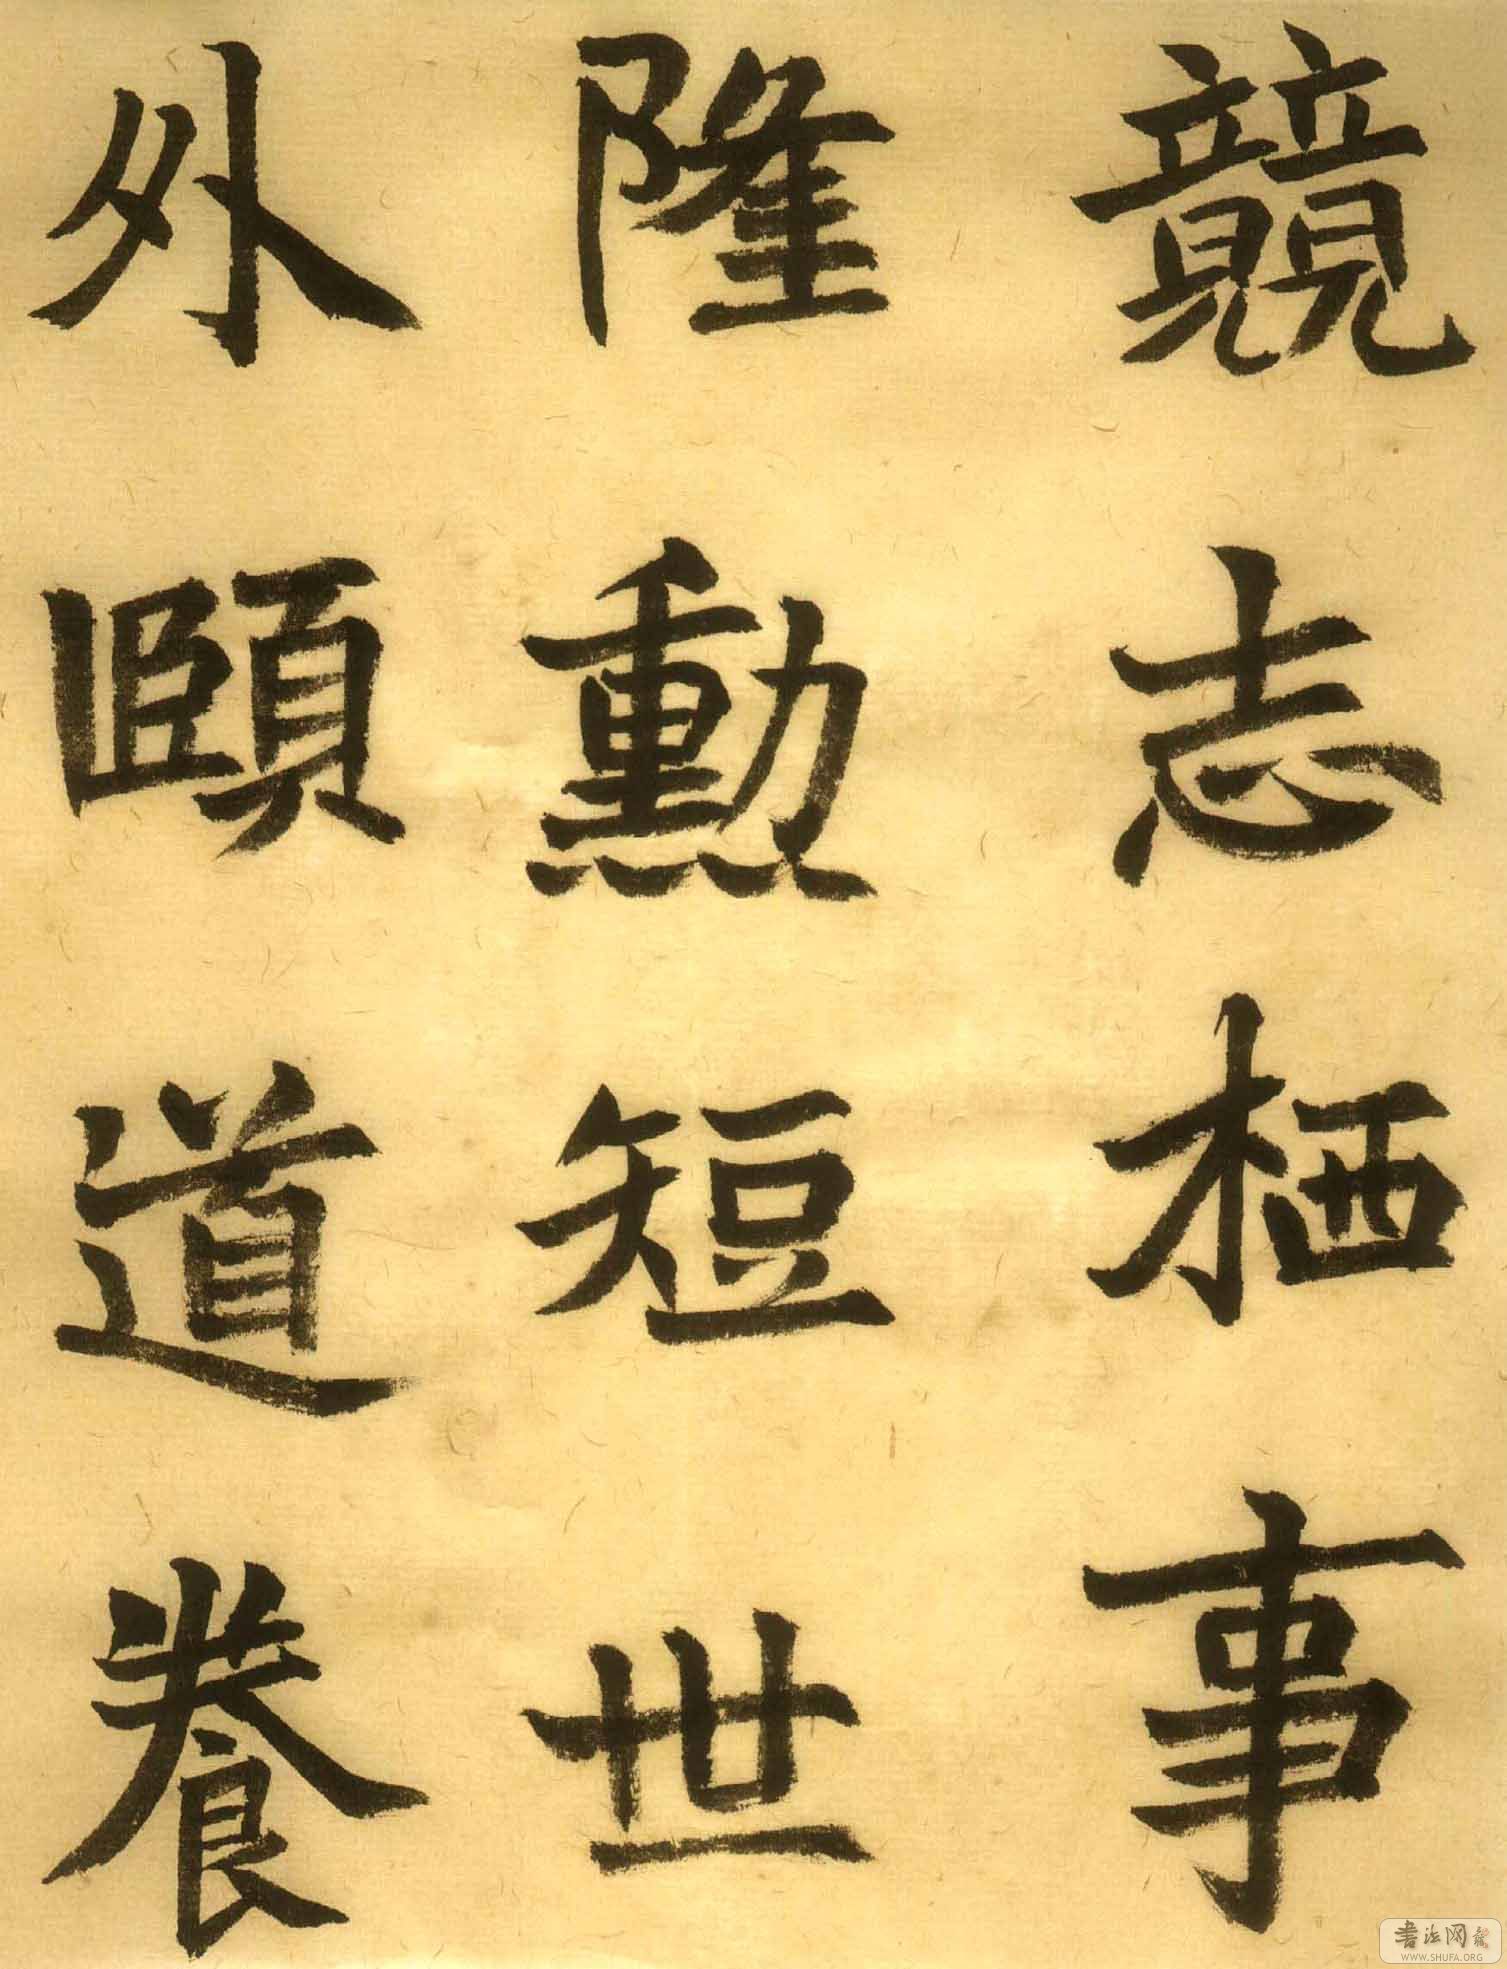 競志栖事
隆勳短世
外頤道養
書法网
WWW.SHUFA.ORG